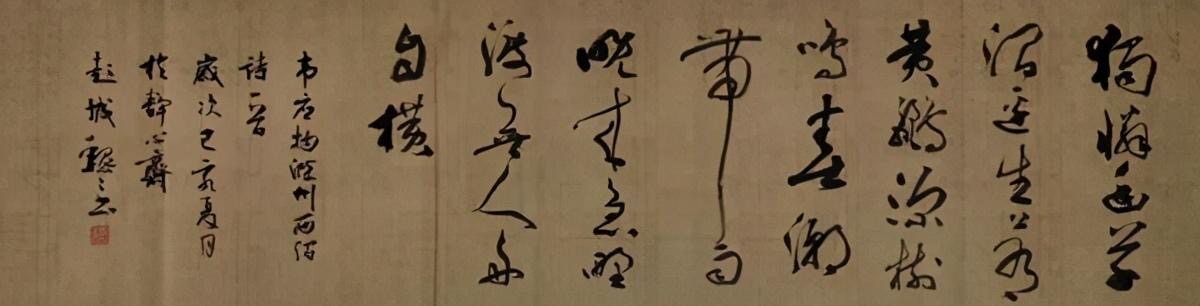 獨憐幽草
澗邊生上有
黄鸝深樹
鳴春潮
帶雨
晚來急野
渡無人舟
自橫
韦应物滁州西澗
詩一首
歲次己亥夏月
於靜心齋
城